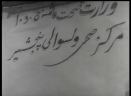 وزارت صحت
مرکز صحی ولسوالی پنجشیر